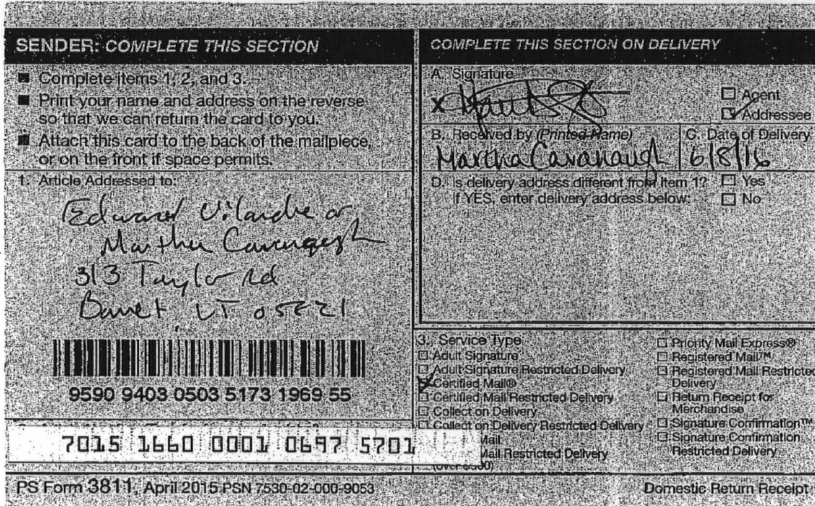 SENDER: COMPLETE THIS SECTION
■ Complete items 1, 2, and 3.
■ Print your name and address on the reverse
so that we can return the card to you.
■ Attach this card to the back of the mailpiece,
or on the front if space permits.
1. Article Addressed to:
Edward
313 Taylor Rd
VT
9590 9403 0503 5173 1969 55
7015 1660 0001 0697 5701
PS Form 3811, April 2015 PSN 7530-02-000-9053
COMPLETE THIS SECTION ON DELIVERY
A. Signature
X
☐ Agent
☐ Addressee
B. Received by (Printed Name)
Martha Cavanaugh
C. Date of Delivery
6/8/16
D. Is delivery address different from item 1? ☐ Yes
If YES, enter delivery address below: ☐ No
3. Service Type
☐ Adult Signature
☐ Adult Signature Restricted Delivery
☐ Certified Mail®
☐ Certified Mail Restricted Delivery
☐ Collect on Delivery
☐ Collect on Delivery Restricted Delivery
Mail
Mail Restricted Delivery
(over $500)
☐ Priority Mail Express®
☐ Registered Mail™
☐ Registered Mail Restricted
Delivery
☐ Return Receipt for
Merchandise
☐ Signature Confirmation™
☐ Signature Confirmation
Restricted Delivery
Domestic Return Receipt